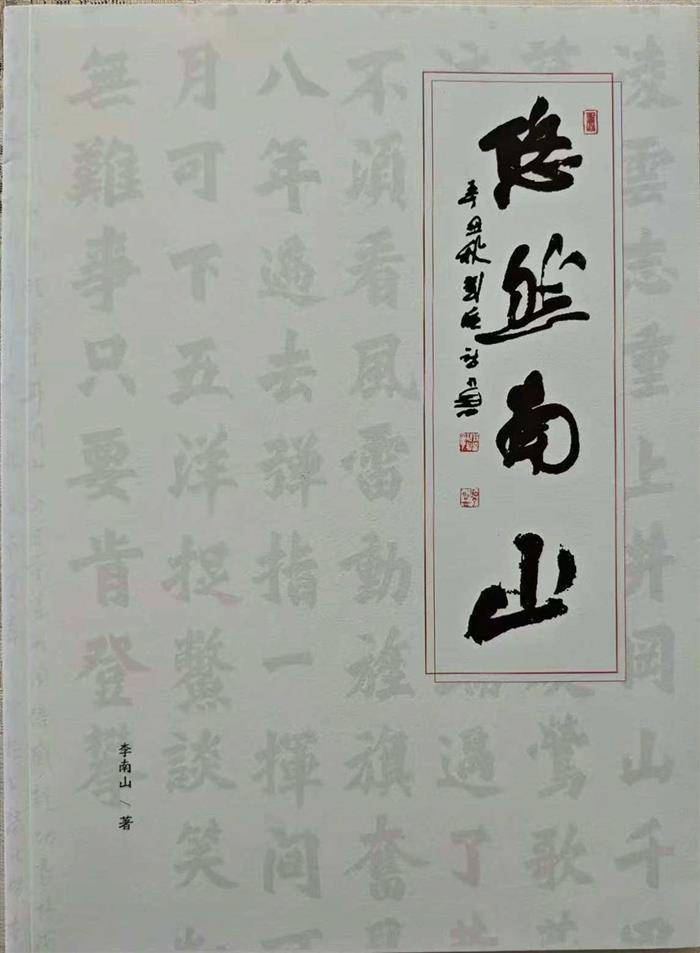 凌雲志重上井岡山千
鶯歌
過了
悠然南山
辛丑秋
不須看風雷動旌旗奮
八年過去彈指一揮間
月可下五洋捉鱉談笑
無難事只要肯登攀
李南山/著